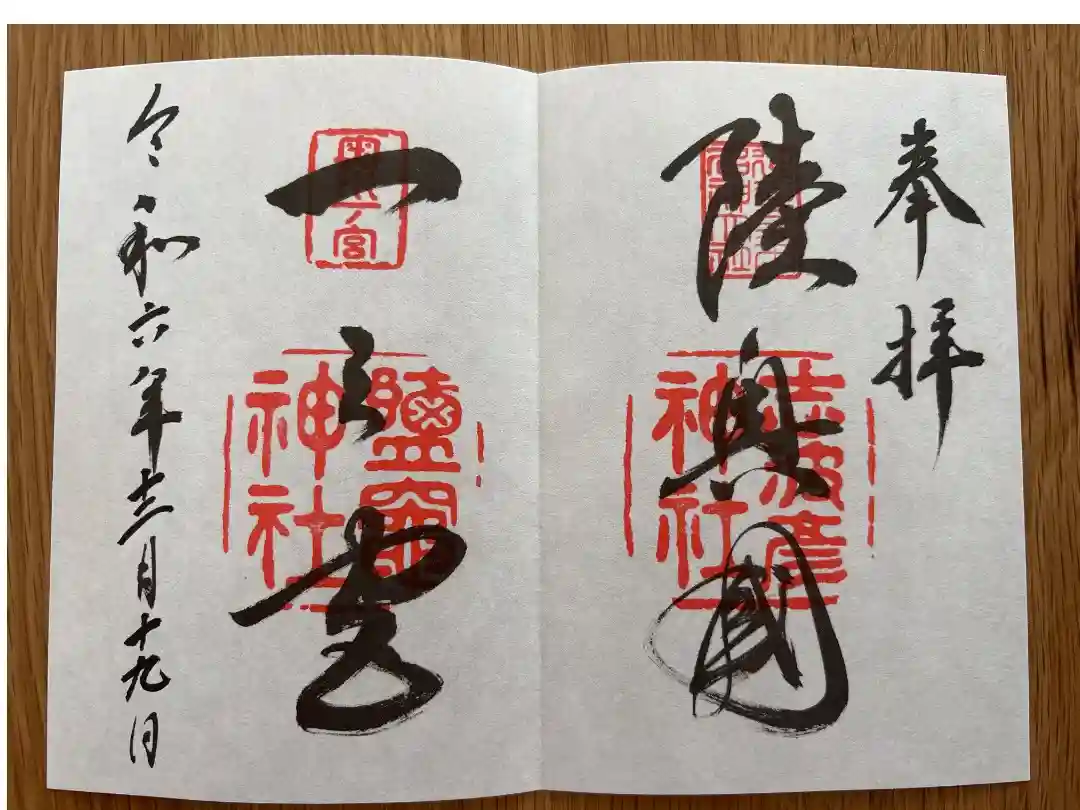 奉拝
陸奥國
志波彦神社
一之宮
鹽竈神社
令和六年十二月十九日